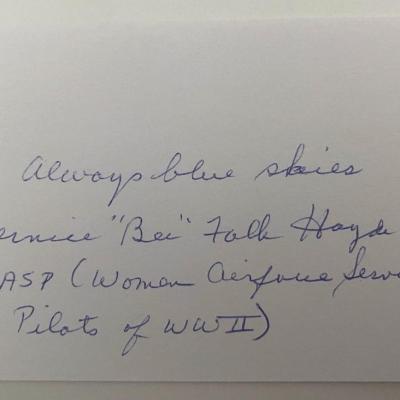 Always blue skies
ernice "Bee" Falk Hayde
ASP (Women Airforce Serv
Pilots of WWII)